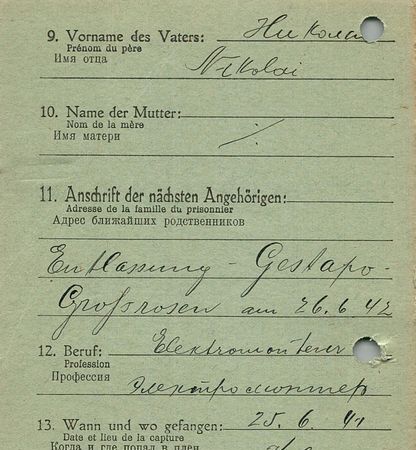 9. Vorname des Vaters: Николай
Prénom du père
Имя отца Nikolai
10. Name der Mutter: ./.
Nom de la mère
Имя матери
11. Anschrift der nächsten Angehörigen:
Adresse de la famille du prisonnier
Адрес ближайших родственников
Entlassung - Gestapo-
Großrosen am 26.6.42
12. Beruf: Elektromonteur
Profession
Профессия Электромонтер
13. Wann und wo gefangen: 25. 6. 41
Date et lieu de la capture
Когда и где попал в плен